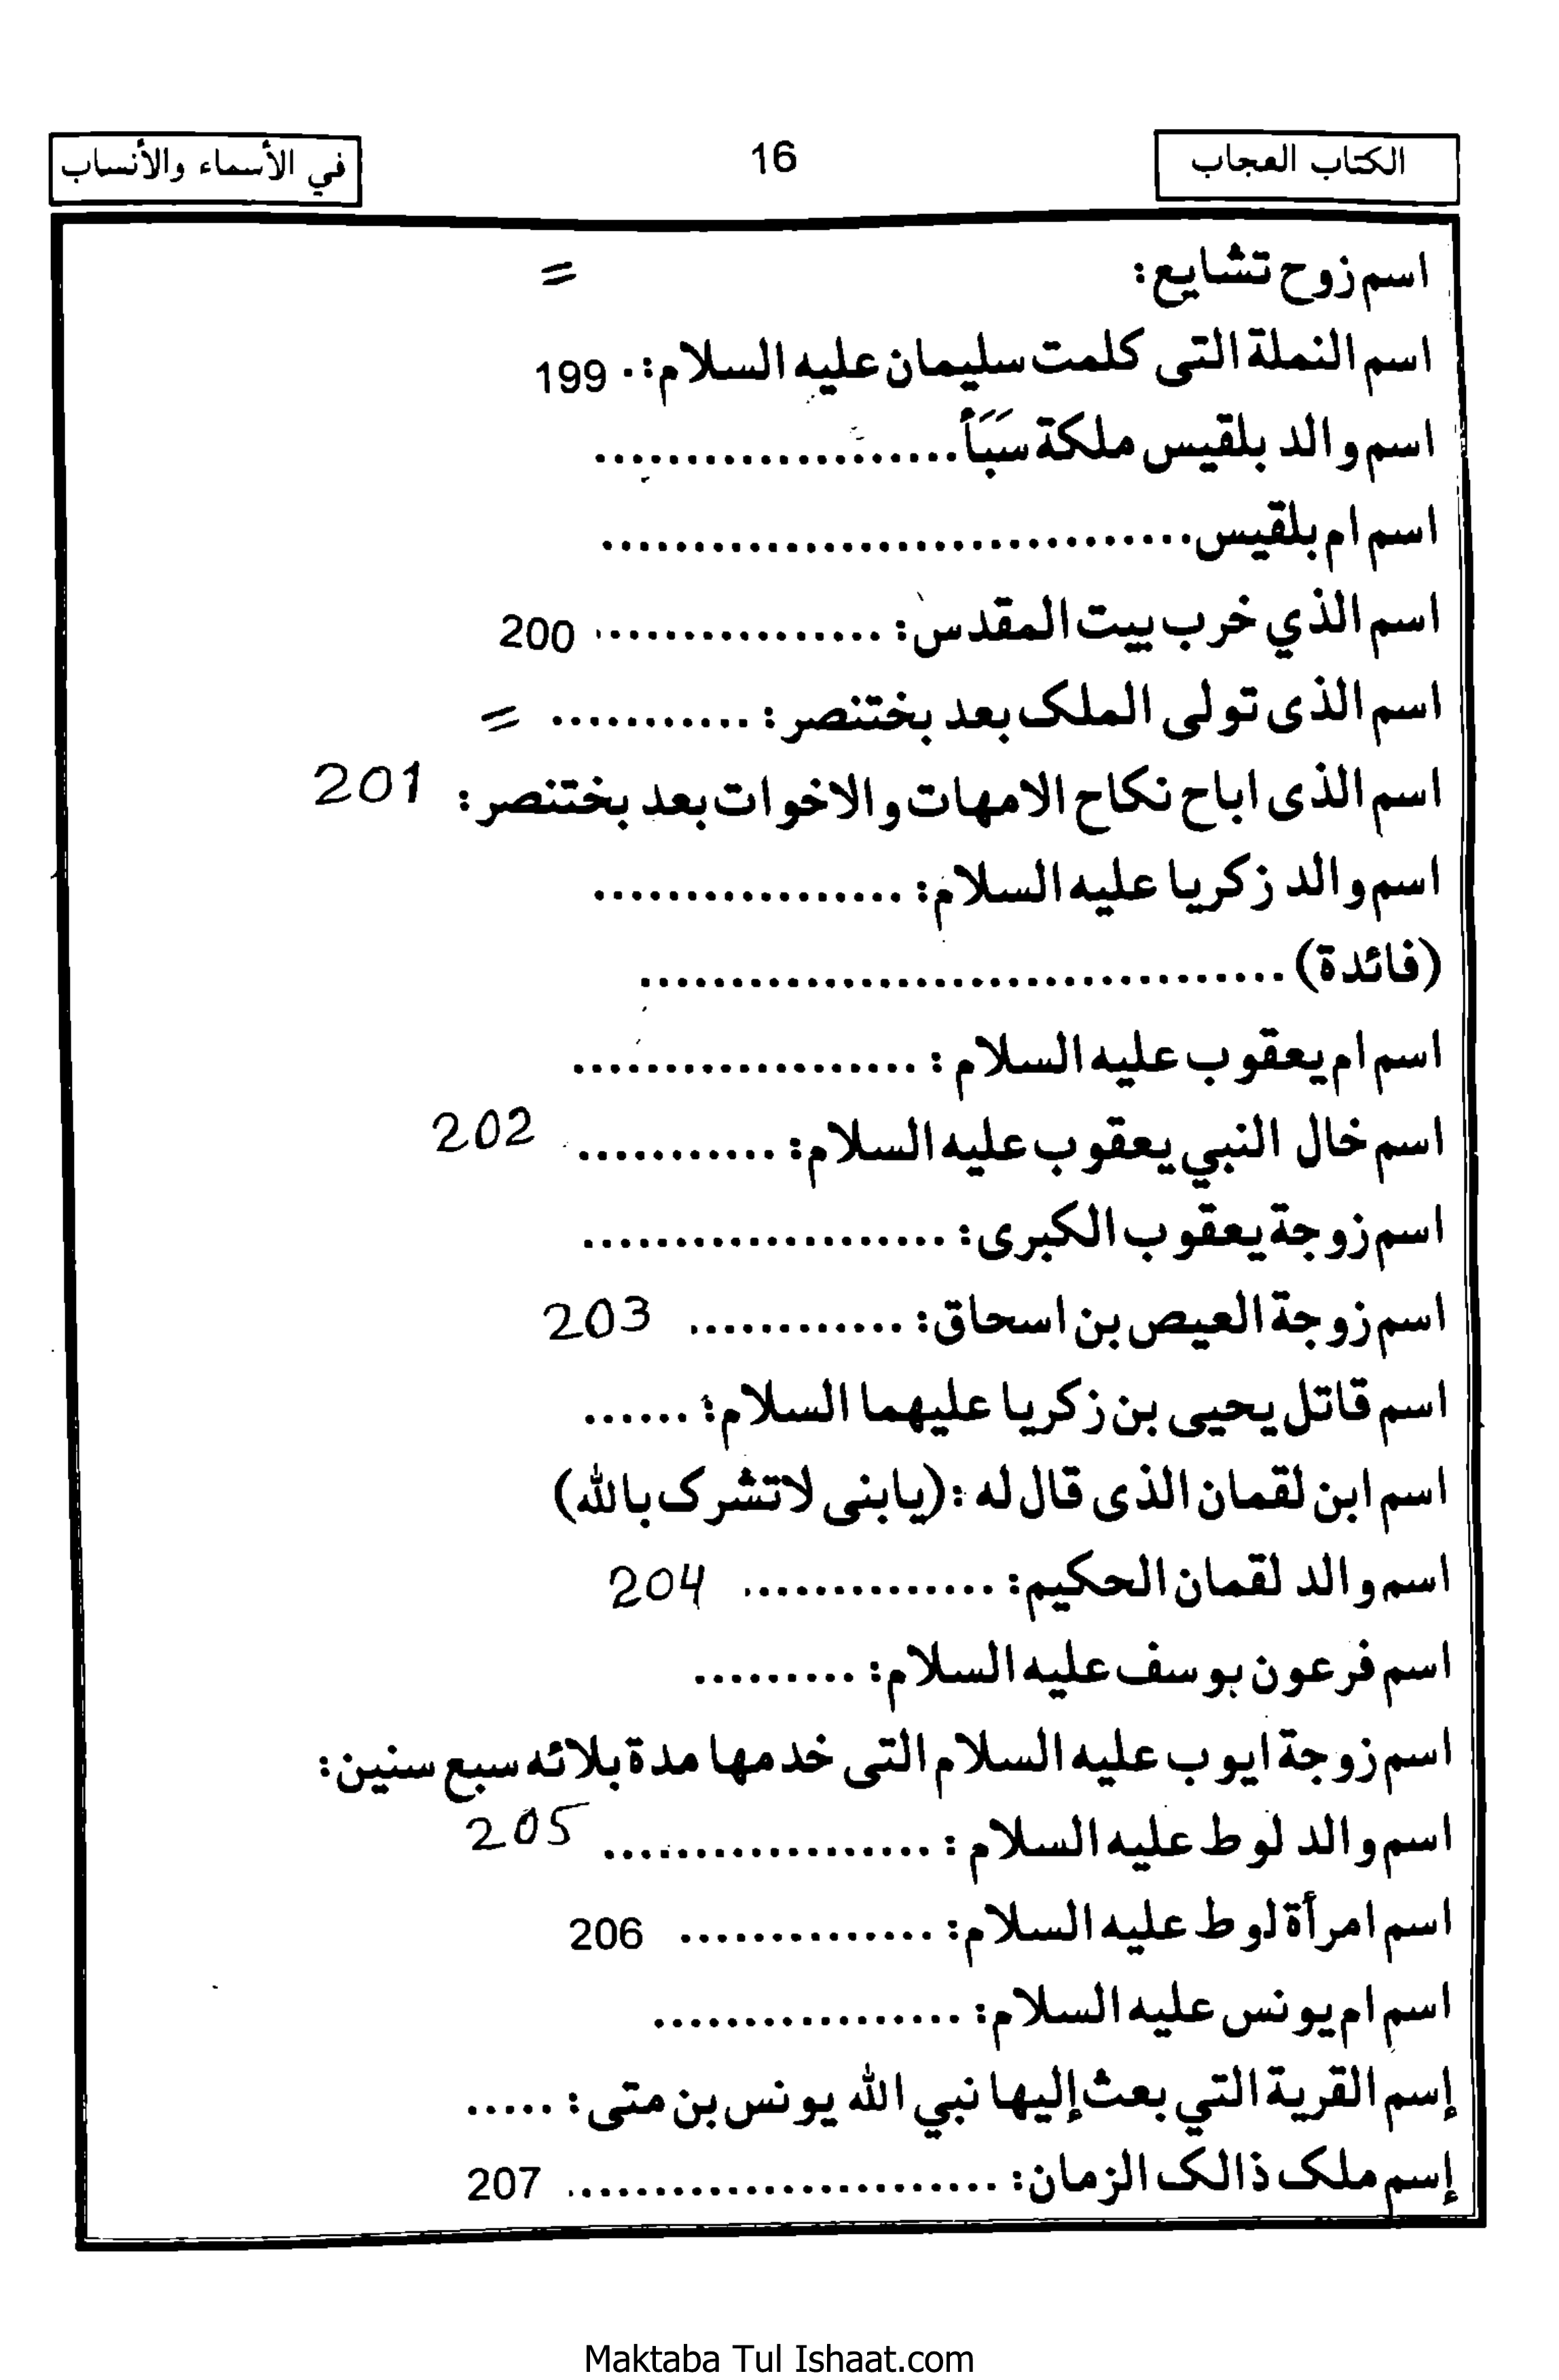 الكتاب العجاب 16 في الأسماء والأنساب
اسم زوج تشايع: =
اسم النملة التى كلمت سليمان عليه السلام: 199
اسم والد بلقيس ملكة سَبَأ....................
اسم ام بلقيس................................
اسم الذي خرب بيت المقدس: ................ 200
اسم الذى تولى الملک بعد بختنصر: ........... =
اسم الذى اباح نكاح الامهات والاخوات بعد بختنصر: 201
اسم والد زكريا عليه السلام: .................
(فائدة) ...................................
اسم ام يعقوب عليه السلام: ...................
اسم خال النبي يعقوب عليه السلام: ........... 202
اسم زوجة يعقوب الكبرى: ....................
اسم زوجة العيص بن اسحاق: ............ 203
اسم قاتل يحيى بن زكريا عليهما السلام: ......
اسم ابن لقمان الذى قال له: (يابنى لاتشرک بالله)
اسم والد لقمان الحكيم: .............. 204
اسم فرعون يوسف عليه السلام: .........
اسم زوجة ايوب عليه السلام التى خدمها مدة بلائه سبع سنين:
اسم والد لوط عليه السلام: .................. 205
اسم امرأة لوط عليه السلام: .............. 206
اسم ام يونس عليه السلام: .................
إسم القرية التي بعث إليها نبي الله يونس بن متى: .....
إسم ملک ذالک الزمان: ........................ 207
Maktaba Tul Ishaat.com